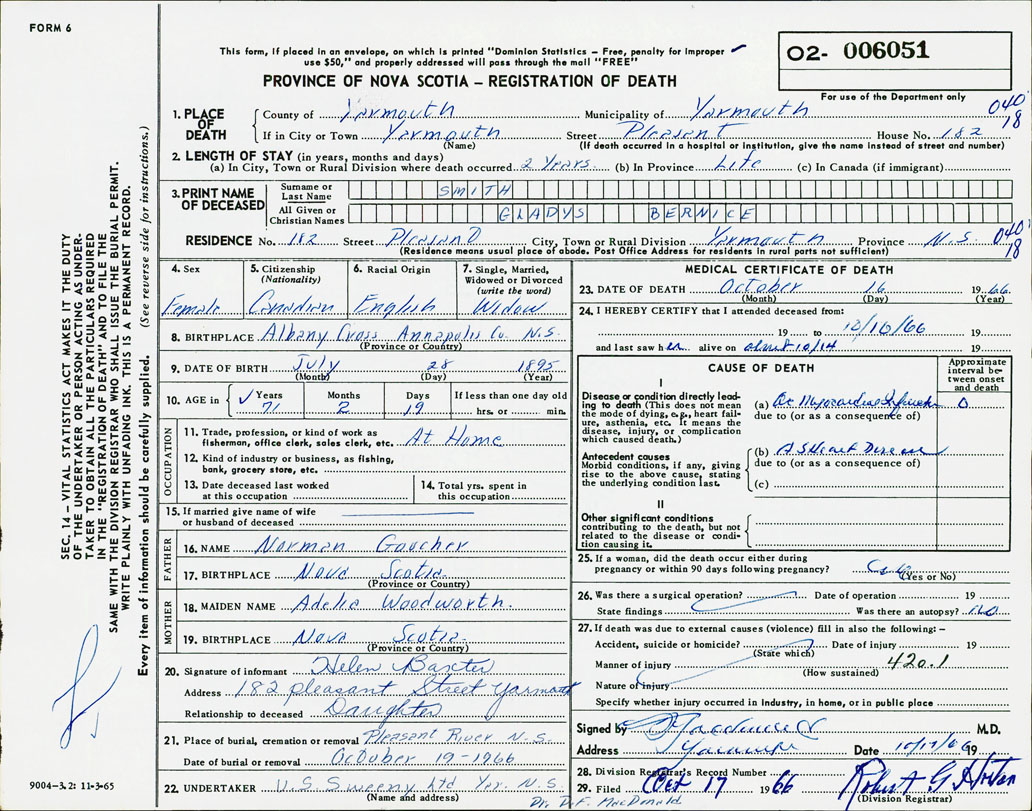 FORM 6
This form, if placed in an envelope, on which is printed "Dominion Statistics – Free, penalty for improper
use $50," and properly addressed will pass through the mail "FREE"
02- 006051
For use of the Department only
PROVINCE OF NOVA SCOTIA – REGISTRATION OF DEATH
1. PLACE OF DEATH County of Yarmouth Municipality of Yarmouth 040
If in City or Town Yarmouth Street Pleasant House No. 182 18
(Name) (If death occurred in a hospital or institution, give the name instead of street and number)
2. LENGTH OF STAY (in years, months and days)
(a) In City, Town or Rural Division where death occurred 2 Years. (b) In Province Life (c) In Canada (if immigrant)
3. PRINT NAME OF DECEASED Surname or Last Name SMITH
All Given or Christian Names GLADYS BERNICE
RESIDENCE No. 182 Street Pleasant City, Town or Rural Division Yarmouth Province N.S. 040
(Residence means usual place of abode. Post Office Address for residents in rural parts not sufficient) 18
4. Sex Female
5. Citizenship (Nationality) Canadian
6. Racial Origin English
7. Single, Married, Widowed or Divorced (write the word) Widow
8. BIRTHPLACE Albany Cross Annapolis Co. N.S.
(Province or Country)
9. DATE OF BIRTH July 28 1895
(Month) (Day) (Year)
10. AGE in Years Months Days If less than one day old
71 2 19 hrs. or min.
OCCUPATION
11. Trade, profession, or kind of work as
fisherman, office clerk, sales clerk, etc. At Home
12. Kind of industry or business, as fishing,
bank, grocery store, etc.
13. Date deceased last worked
at this occupation
14. Total yrs. spent in
this occupation
15. If married give name of wife
or husband of deceased
FATHER
16. NAME Norman Gaucher
17. BIRTHPLACE Nova Scotia
(Province or Country)
MOTHER
18. MAIDEN NAME Adelia Woodworth.
19. BIRTHPLACE Nova Scotia
(Province or Country)
20. Signature of informant Helen Baxter
Address 182 pleasant Street Yarmouth
Relationship to deceased Daughter
21. Place of burial, cremation or removal Pleasant River N.S.
Date of burial or removal October 19-1966
22. UNDERTAKER U.S. Sweeny Ltd Yar N.S.
(Name and address)
Dr. D.F. MacDonald
MEDICAL CERTIFICATE OF DEATH
23. DATE OF DEATH October 16 19 66
(Month) (Day) (Year)
24. I HEREBY CERTIFY that I attended deceased from:
19 to 10/16/66 19
and last saw her alive on about 10/14 19
CAUSE OF DEATH
Approximate interval between onset and death
I
Disease or condition directly leading to death (This does not mean
the mode of dying, e.g., heart failure, asthenia, etc. It means the
disease, injury, or complication
which caused death.)
(a) Ac Myocardial Infarct 0
due to (or as a consequence of)
Antecedent causes
Morbid conditions, if any, giving
rise to the above cause, stating
the underlying condition last.
(b) AS Heart Disease
due to (or as a consequence of)
(c)
II
Other significant conditions
contributing to the death, but not
related to the disease or condition causing it.
25. If a woman, did the death occur either during
pregnancy or within 90 days following pregnancy?
(Yes or No)
26. Was there a surgical operation? Date of operation 19
State findings Was there an autopsy? no
27. If death was due to external causes (violence) fill in also the following:–
Accident, suicide or homicide? Date of injury 19
(State which)
Manner of injury 420.1
(How sustained)
Nature of injury
Specify whether injury occurred in industry, in home, or in public place
Signed by M.D.
Address Yarmouth Date 10/17/66 19
28. Division Registrar's Record Number
29. Filed Oct 17 1966 Robert G Horton
(Division Registrar)
SEC. 14 – VITAL STATISTICS ACT MAKES IT THE DUTY
OF THE UNDERTAKER OR PERSON ACTING AS UNDER-
TAKER TO OBTAIN ALL THE PARTICULARS REQUIRED
IN THE "REGISTRATION OF DEATH" AND TO FILE THE
SAME WITH THE DIVISION REGISTRAR WHO SHALL ISSUE THE BURIAL PERMIT.
WRITE PLAINLY WITH UNFADING INK. THIS IS A PERMANENT RECORD.
Every item of information should be carefully supplied. (See reverse side for instructions.)
9004-3.2: 11-3-65